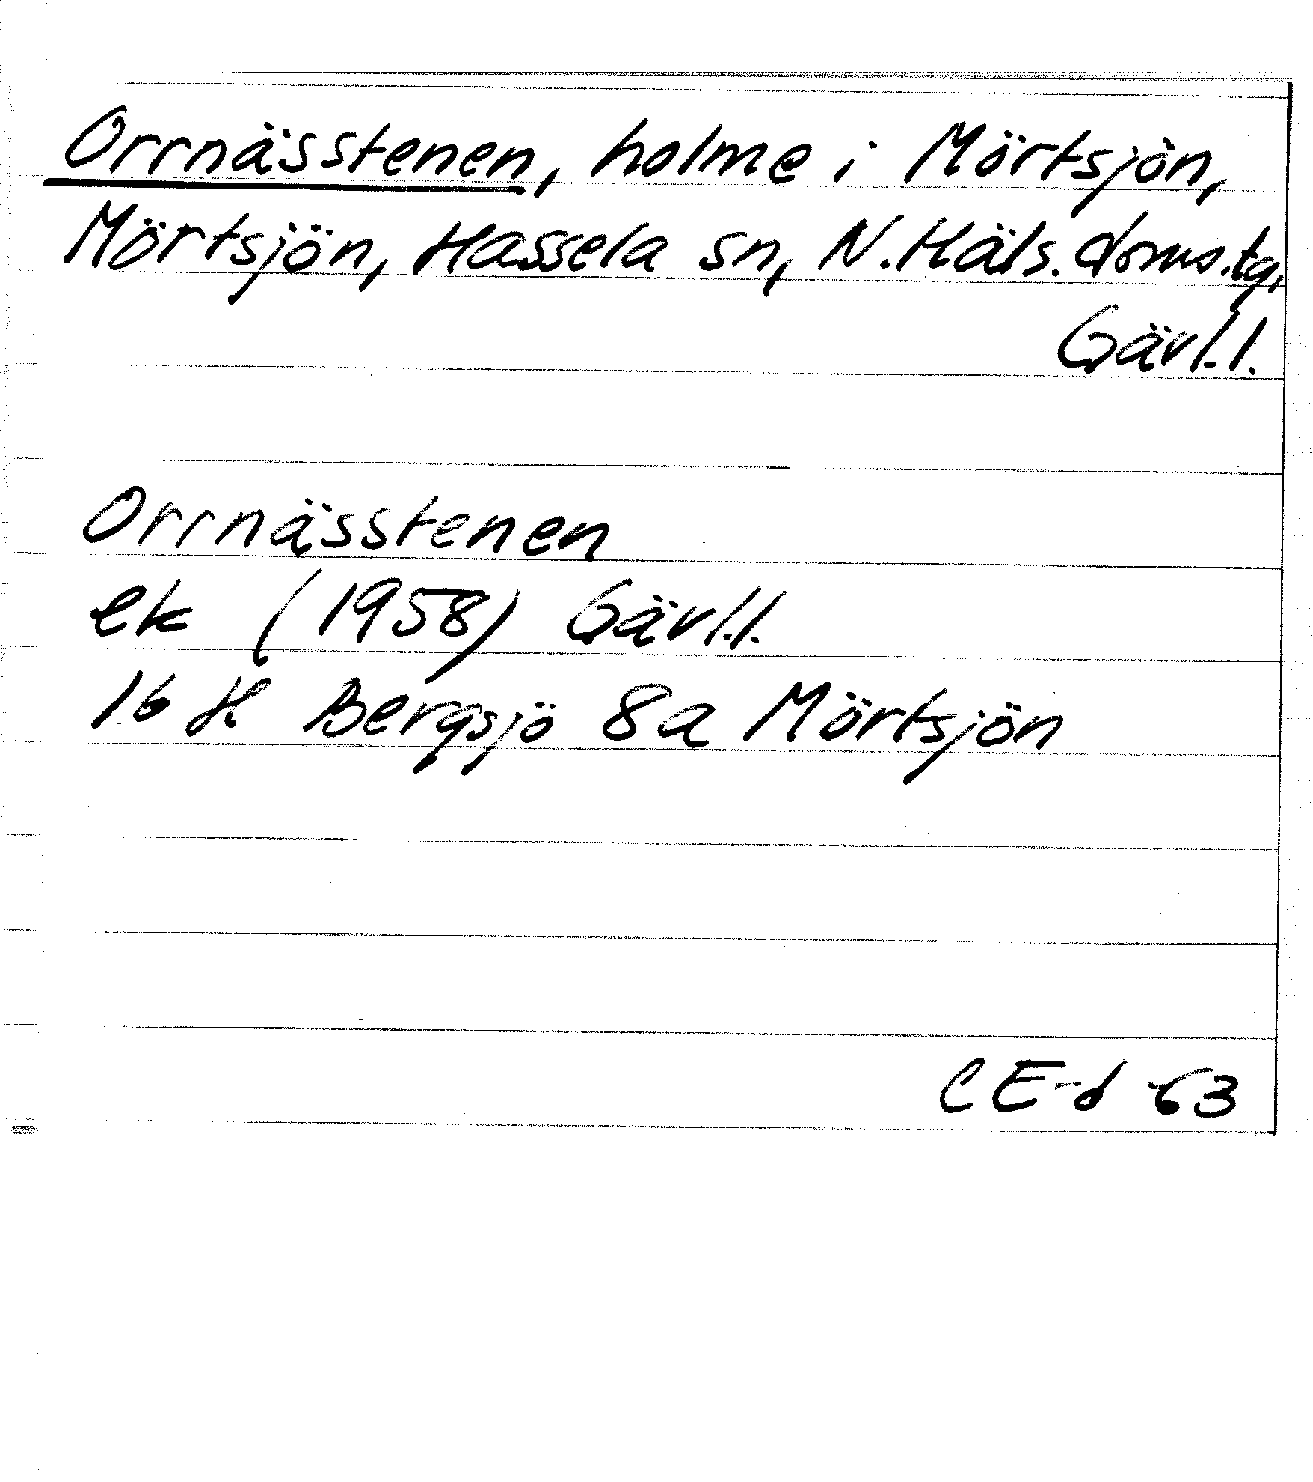 Orrnässtenen, holme i Mörtsjön,
Mörtsjön, Hassela sn, N. Häls. doms. tg,
Gävl.l.
Orrnässtenen
ek (1958) Gävl.l.
16 H Bergsjö 8a Mörtsjön
CE-d -63